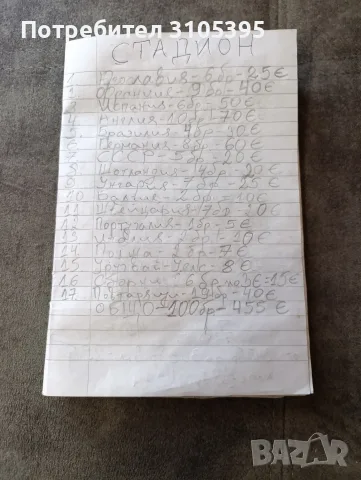 Потребител 3105395
СТАДИОН
1 Югославия - 6бр - 25€
2 Франция - 9бр - 40€
3 Испания - 6бр - 50€
4 Англия - 10бр - 70€
5 Бразилия 4бр - 30€
6 Германия - 8бр - 60€
7 СССР - 5бр - 20€
8 Шотландия - 20€
9 Унгария - 7бр - 25€
10 Белгия - 2бр - 10€
11 Швейцария 20€
12 Португалия - 1бр - 5€
13 Италия - 2бр - 10€
14 Полша - 2бр - 7€
15 Уругвай - 8€
16 Сборни 6бр = 15€
17 40€
ОБЩО - 100бр - 455€
BAZAR